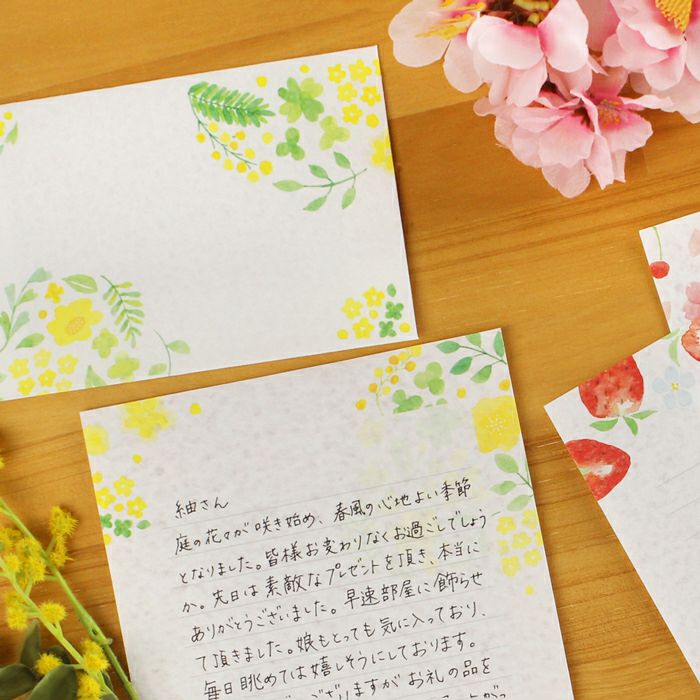 紬さん
庭の花々が咲き始め、春風の心地よい季節
となりました。皆様お変わりなくお過ごしでしょう
か。先日は素敵なプレゼントを頂き、本当に
ありがとうございました。早速部屋に飾らせ
て頂きました。娘もとっても気に入っており、
毎日眺めては嬉しそうにしております。
ございますがお礼の品を